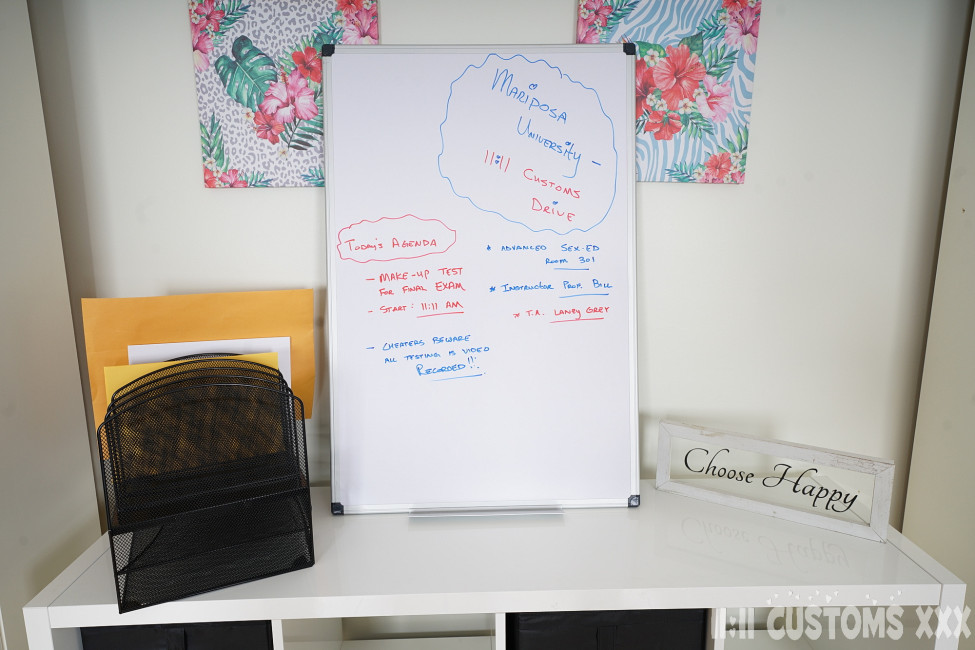 Mariposa
University -
11:11 Customs
Drive
Today's Agenda
- Make-up Test
for Final Exam
- Start: 11:11 AM
- Cheaters Beware
All testing is video
Recorded!!!
* Advanced Sex-Ed
Room 301
* Instructor Prof Bill
* T.A. Landy Grey
Choose Happy
11:11 CUSTOMS XXX